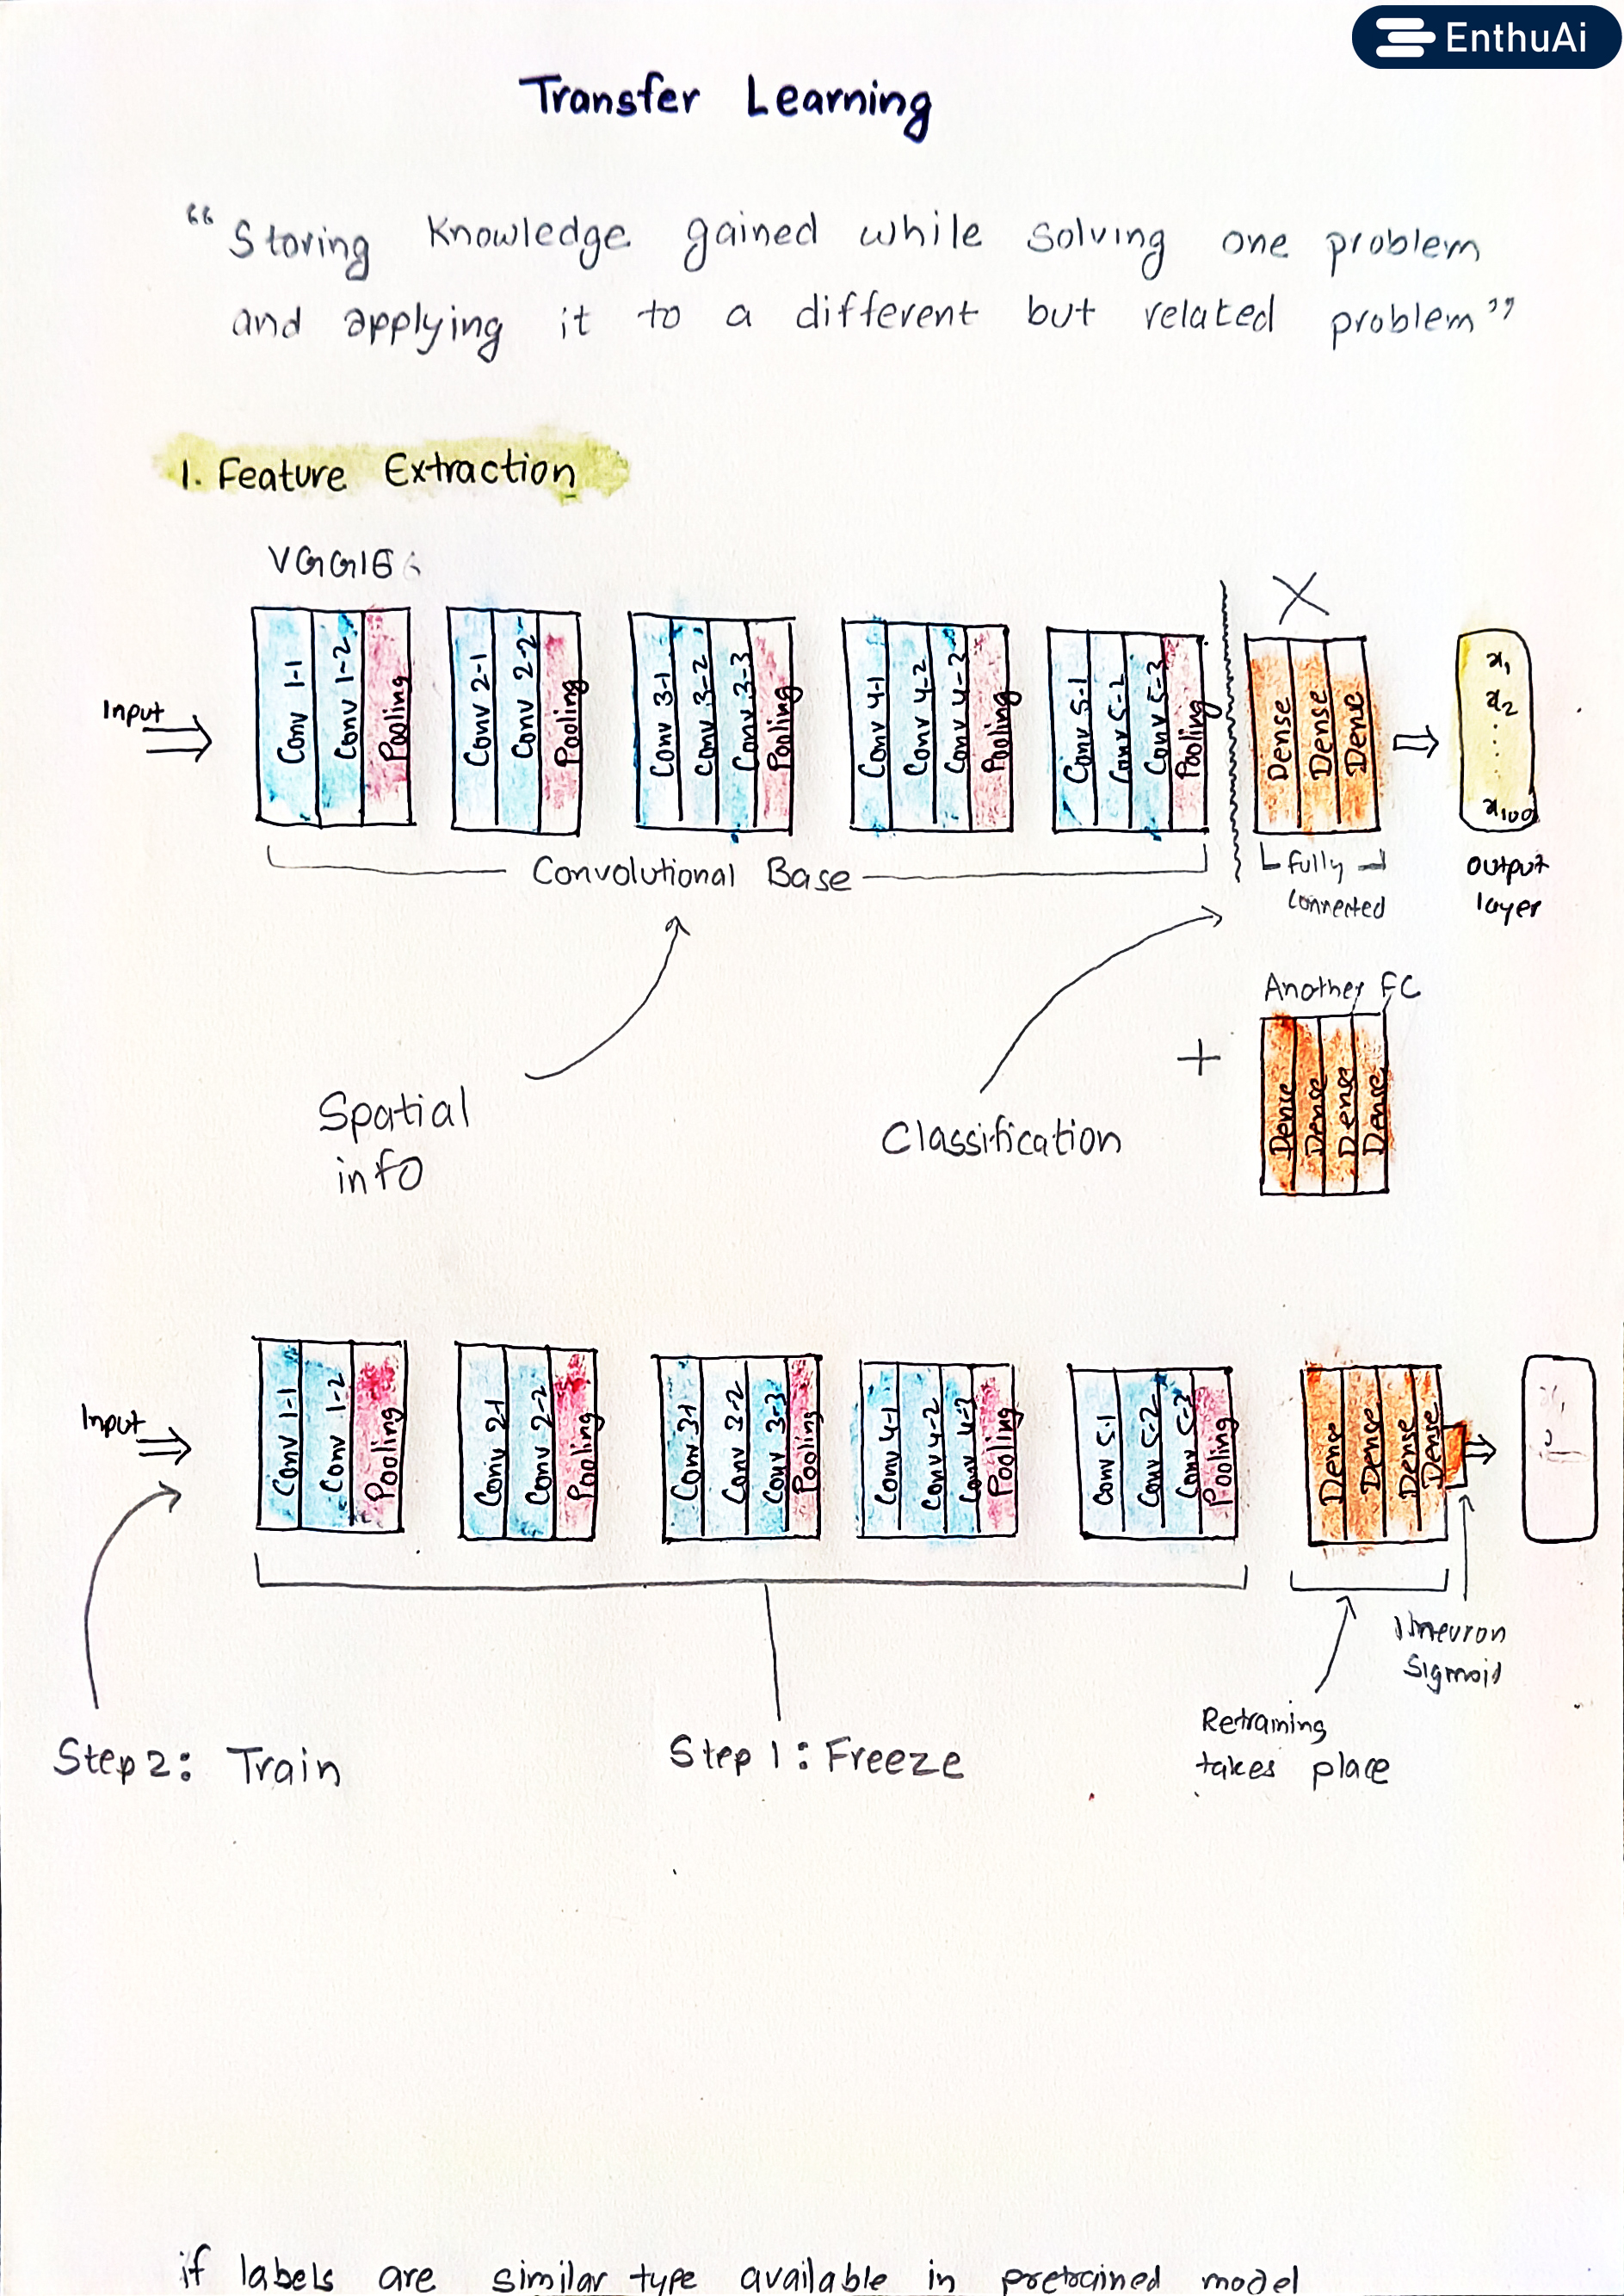 EnthuAi
Transfer Learning
“Storing knowledge gained while solving one problem
and applying it to a different but related problem”
1. Feature Extraction
VGG16
Input
Conv 1-1
Conv 1-2
Pooling
Conv 2-1
Conv 2-2
Pooling
Conv 3-1
Conv 3-2
Conv 3-3
Pooling
Conv 4-1
Conv 4-2
Conv 4-3
Pooling
Conv 5-1
Conv 5-2
Conv 5-3
Pooling
X
Dense
Dense
Dense
x1
x2
x100
Convolutional Base
fully
connected
output
layer
Another FC
+
Dense
Dense
Dense
Dense
Spatial
info
Classification
Input
Conv 1-1
Conv 1-2
Pooling
Conv 2-1
Conv 2-2
Pooling
Conv 3-1
Conv 3-2
Conv 3-3
Pooling
Conv 4-1
Conv 4-2
Conv 4-3
Pooling
Conv 5-1
Conv 5-2
Conv 5-3
Pooling
Dense
Dense
Dense
Dense
1 neuron
Sigmoid
Retraining
takes place
Step 2: Train
Step 1: Freeze
if labels are similar type available in pretrained model